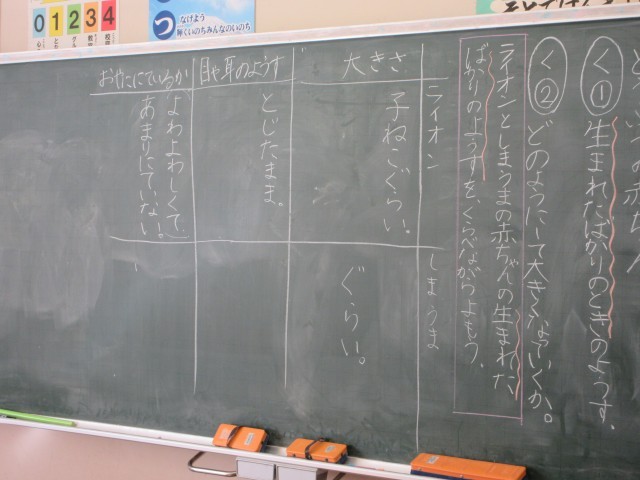 く① 生まれたばかりのときのようす。
く② どのようにして大きくなっていくか。
ライオンとしまうまの赤ちゃんの生まれた
ばかりのようすを、くらべながらよもう。
ライオン
しまうま
大きさ
子ねこぐらい。
ぐらい。
目や耳のようす
とじたまま。
おやににているか
よわよわしくて、
あまりにていない。
0 1 2 3 4
つ なけよう
輝くいのちみんなのいのち